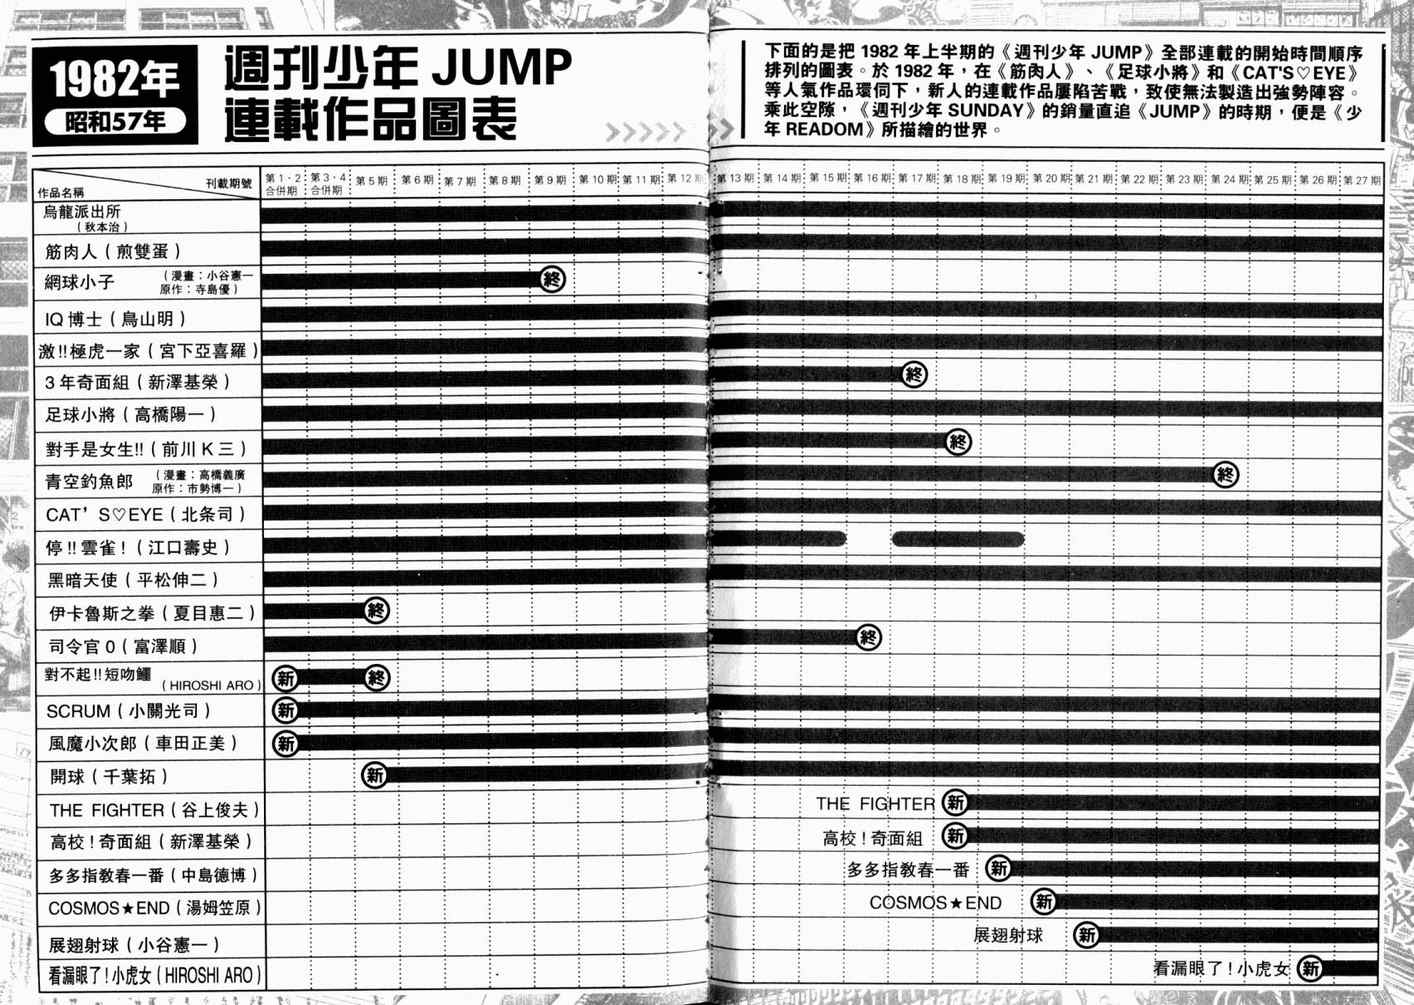 1982年
昭和57年
週刊少年 JUMP
連載作品圖表
下面的是把 1982 年上半期的《週刊少年 JUMP》全部連載的開始時間順序
排列的圖表。於 1982 年，在《筋肉人》、《足球小將》和《CAT'S♡EYE》
等人氣作品環伺下，新人的連載作品屢陷苦戰，致使無法製造出強勢陣容。
乘此空隙，《週刊少年 SUNDAY》的銷量直追《JUMP》的時期，便是《少
年 READOM》所描繪的世界。
刊載期號
作品名稱
第 1・2 合併期 第 3・4 合併期 第 5 期 第 6 期 第 7 期 第 8 期 第 9 期 第 10 期 第 11 期 第 12 期 第 13 期 第 14 期 第 15 期 第 16 期 第 17 期 第 18 期 第 19 期 第 20 期 第 21 期 第 22 期 第 23 期 第 24 期 第 25 期 第 26 期 第 27 期
烏龍派出所
（秋本治）
筋肉人（煎雙蛋）
網球小子 （漫畫：小谷憲一
原作：寺島優） 終
IQ 博士（鳥山明）
激!!極虎一家（宮下亞喜羅）
3 年奇面組（新澤基榮） 終
足球小將（高橋陽一）
對手是女生!!（前川 K 三） 終
青空釣魚郎 （漫畫：高橋義廣
原作：市勢博一） 終
CAT'S♡EYE（北条司）
停!!雲雀！（江口壽史）
黑暗天使（平松伸二）
伊卡魯斯之拳（夏目惠二） 終
司令官 0（富澤順） 終
對不起!!短吻鱷 新 終
（HIROSHI ARO）
SCRUM（小關光司） 新
風魔小次郎（車田正美） 新
開球（千葉拓） 新
THE FIGHTER（谷上俊夫） THE FIGHTER 新
高校！奇面組（新澤基榮） 高校！奇面組 新
多多指教春一番（中島德博） 多多指教春一番 新
COSMOS★END（湯姆笠原） COSMOS★END 新
展翅射球（小谷憲一） 展翅射球 新
看漏眼了！小虎女（HIROSHI ARO） 看漏眼了！小虎女 新